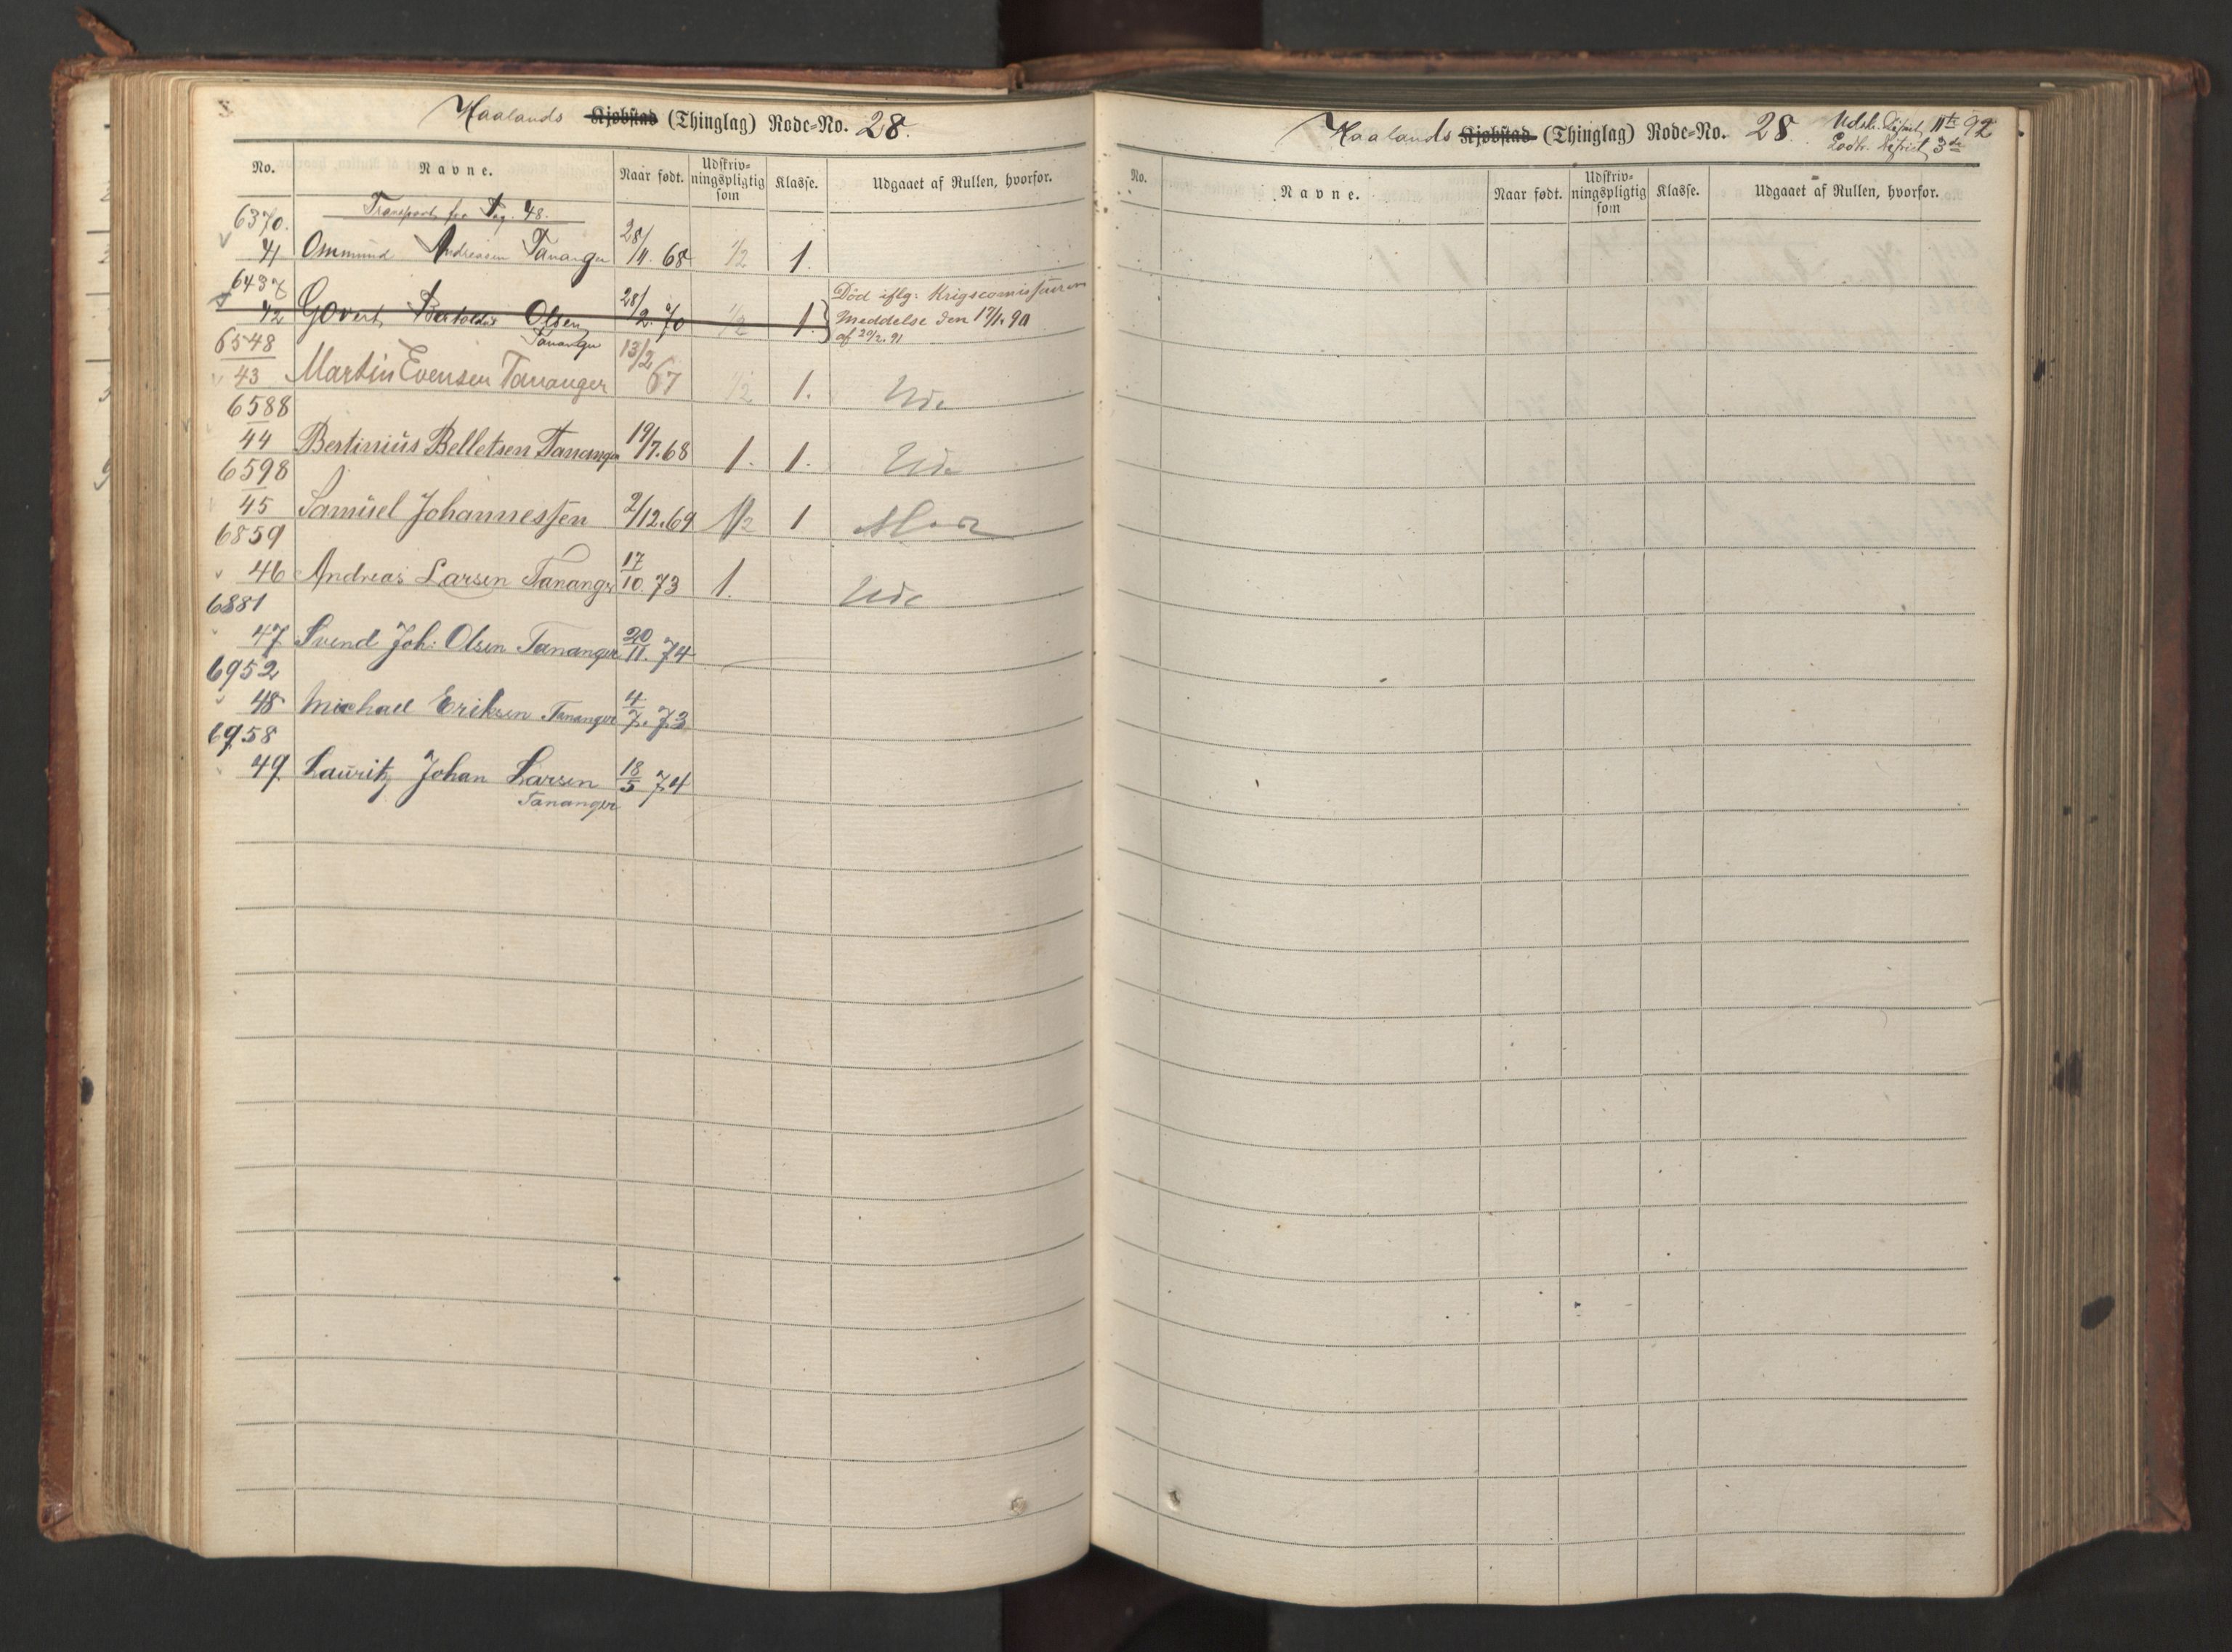 Haalands Kjøbstad (Thinglag) Rode-No. 28.
No. Navne. Naar født. Udskriv-ningspligtig som Klasse. Udgaaet af Rullen, hvorfor.
Transport fra Pag. 48.
6370.
41 Ommund Andreassen Tananger 28/11. 68 1/2 1.
6437
42 Govert Bertoldus Olsen 28/2. 70 1/2 1. Død iflg. Krigscomissæren
Tananger Meddelse den 17/1. 90
af 20/2. 91
6548
43 Martin Evensen Tananger 13/2 67 1/2 1. Ude
6588
44 Bertinius Belletsen Tananger 19/7.68 1. 1. Ude
6598
45 Samuel Johannessen 2/12.69 1/2 1
6859
46 Andreas Larsen Tananger 17/10. 73 1. Ude
6881
47 Svend Joh. Olsen Tananger 20/11. 74
6952
48 Michael Eriksen Tananger 4/7. 73
6958
49 Lauritz Johan Larsen 18/5 74
Tananger
Haalands Kjøbstad (Thinglag) Rode-No. 28. Udskr. District 11te 92
Lodtr. District 3de
No. Navne. Naar født. Udskriv-ningspligtig som Klasse. Udgaaet af Rullen, hvorfor.